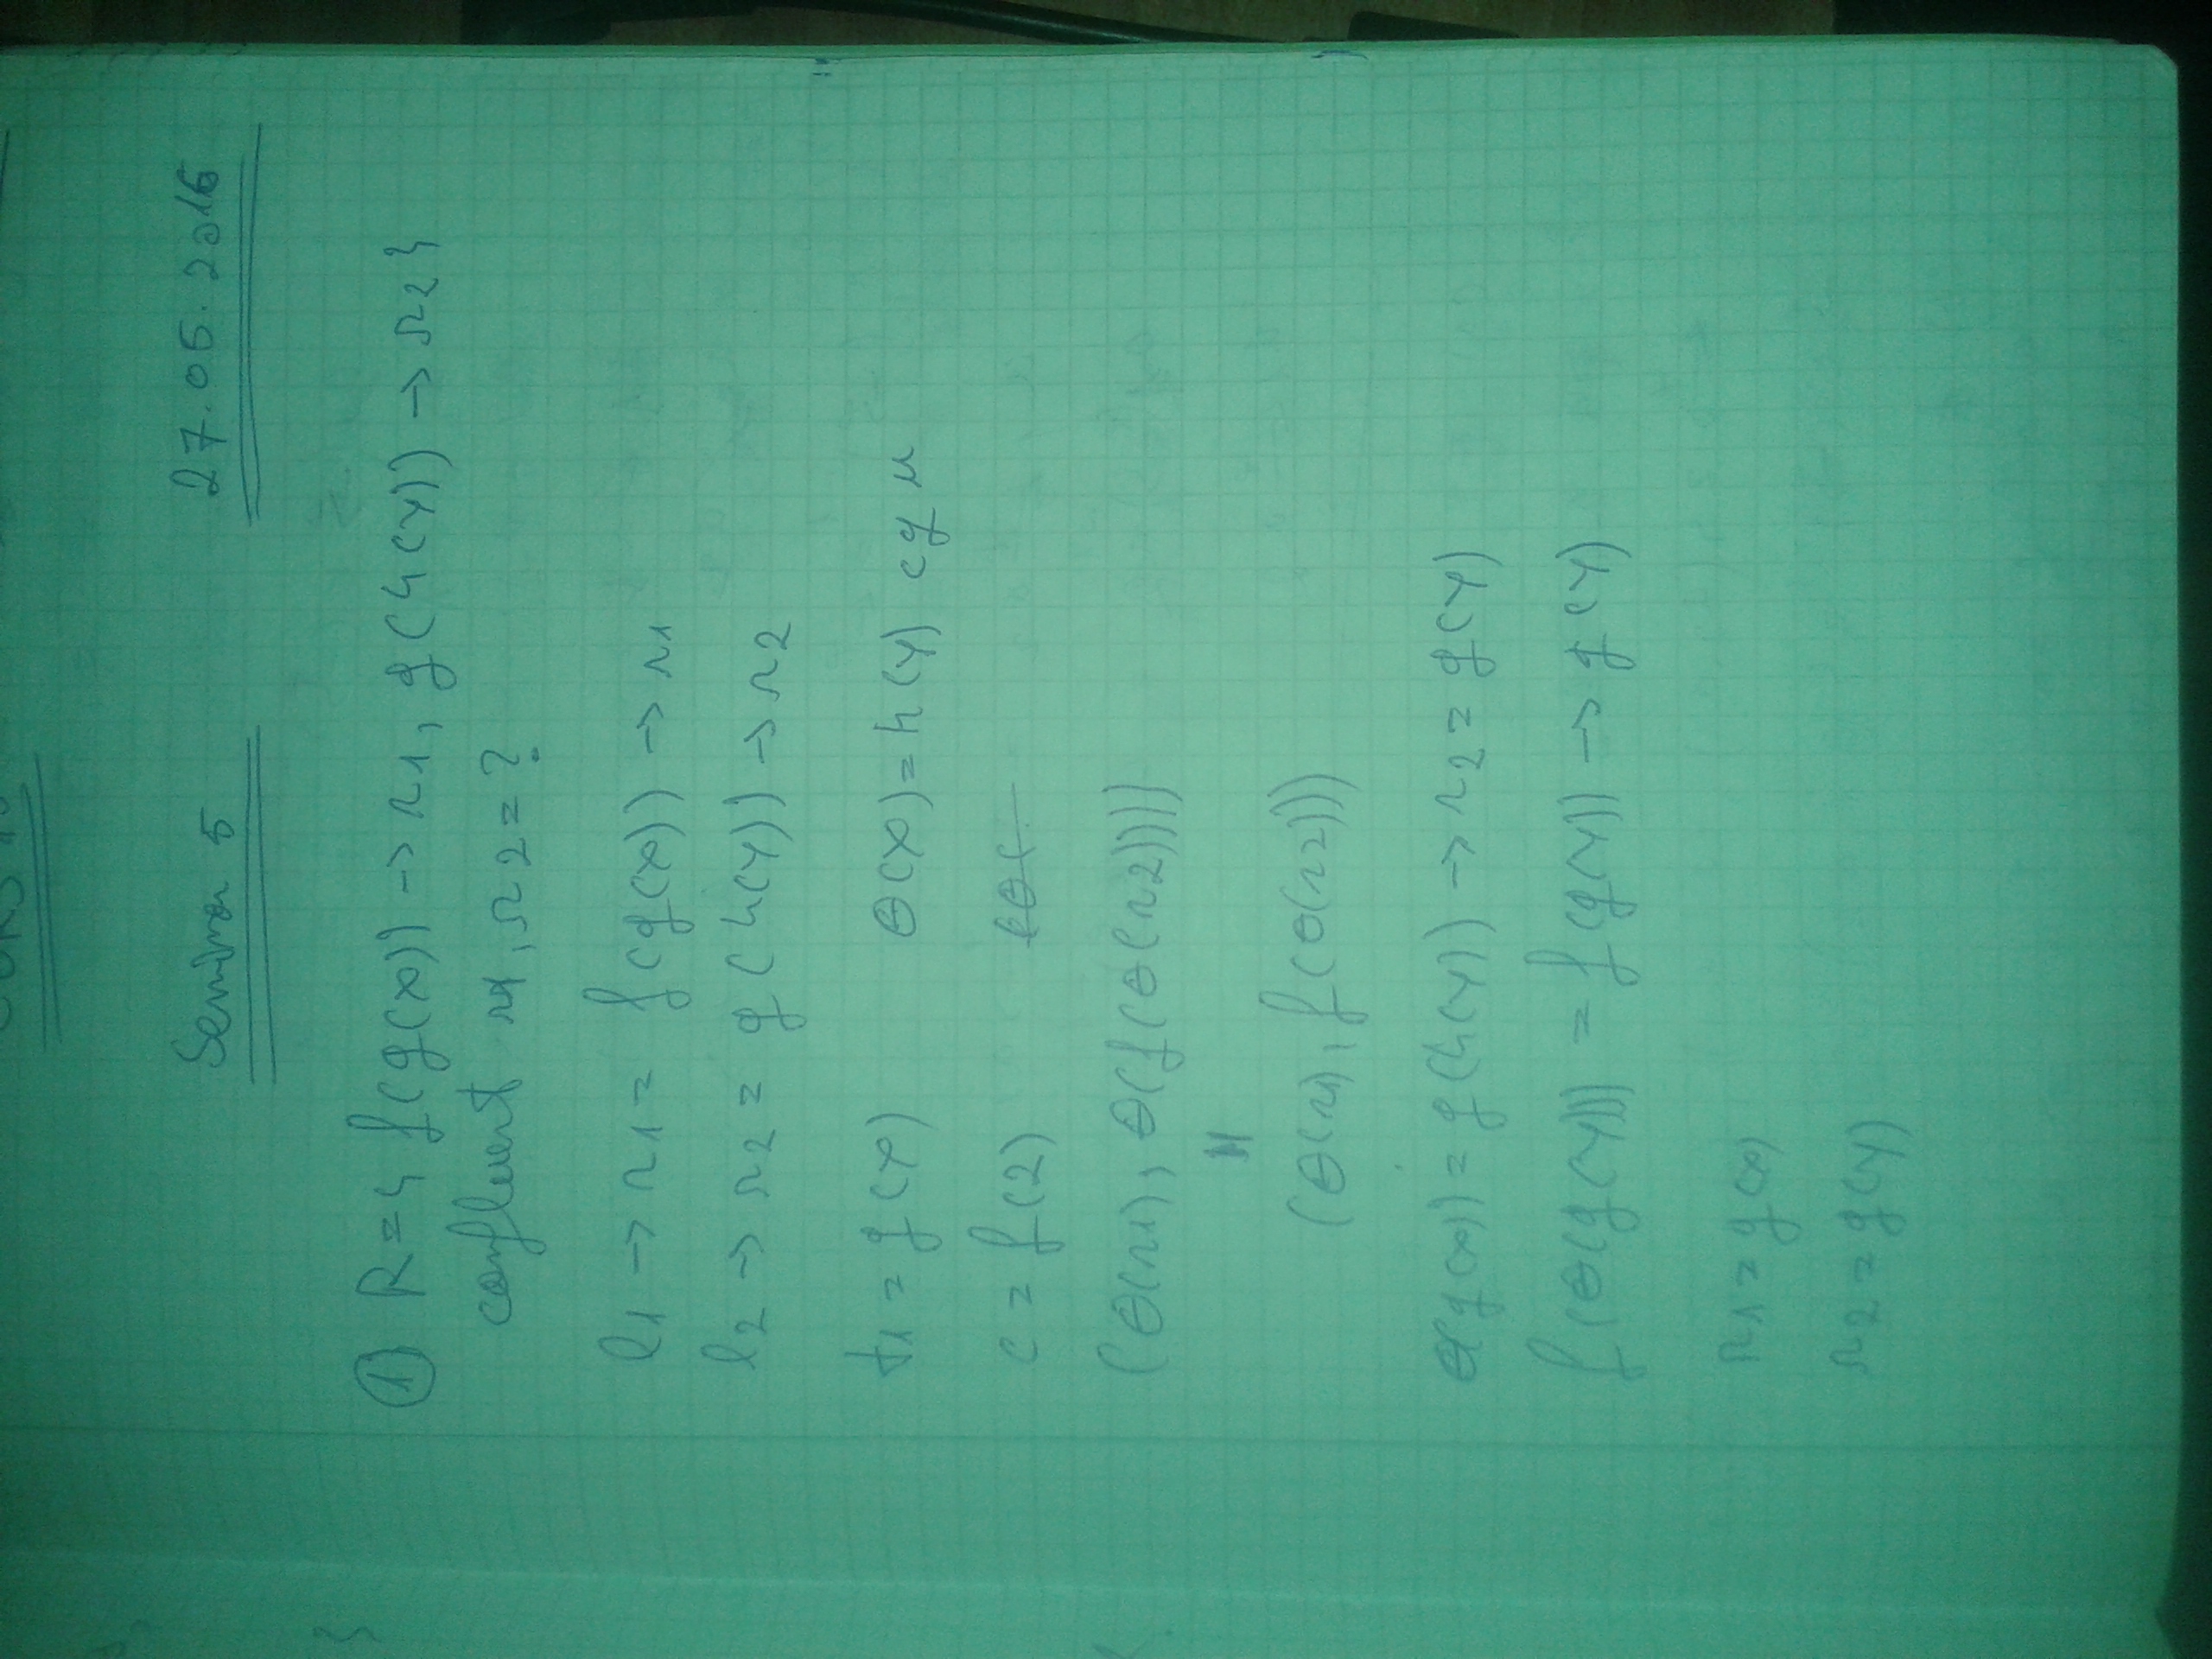 CURS 10
Seminar 5 27.05.2016
① R = { f(g(x)) → r1, g(h(y)) → r2 }
confluent r1, r2 = ?
l1 → r1 = f(g(x)) → r1
l2 → r2 = g(h(y)) → r2
t1 = g(x) θ(x) = h(y) cgu
c = f(z)
(θ(r1), θ(f(θ(r2))))
=
(θ(r1), f(θ(r2)))
θ(g(x)) = g(h(y)) → r2 = g(y)
f(θ(g(y))) = f(g(y)) → g(y)
r1 = g(x)
r2 = g(y)